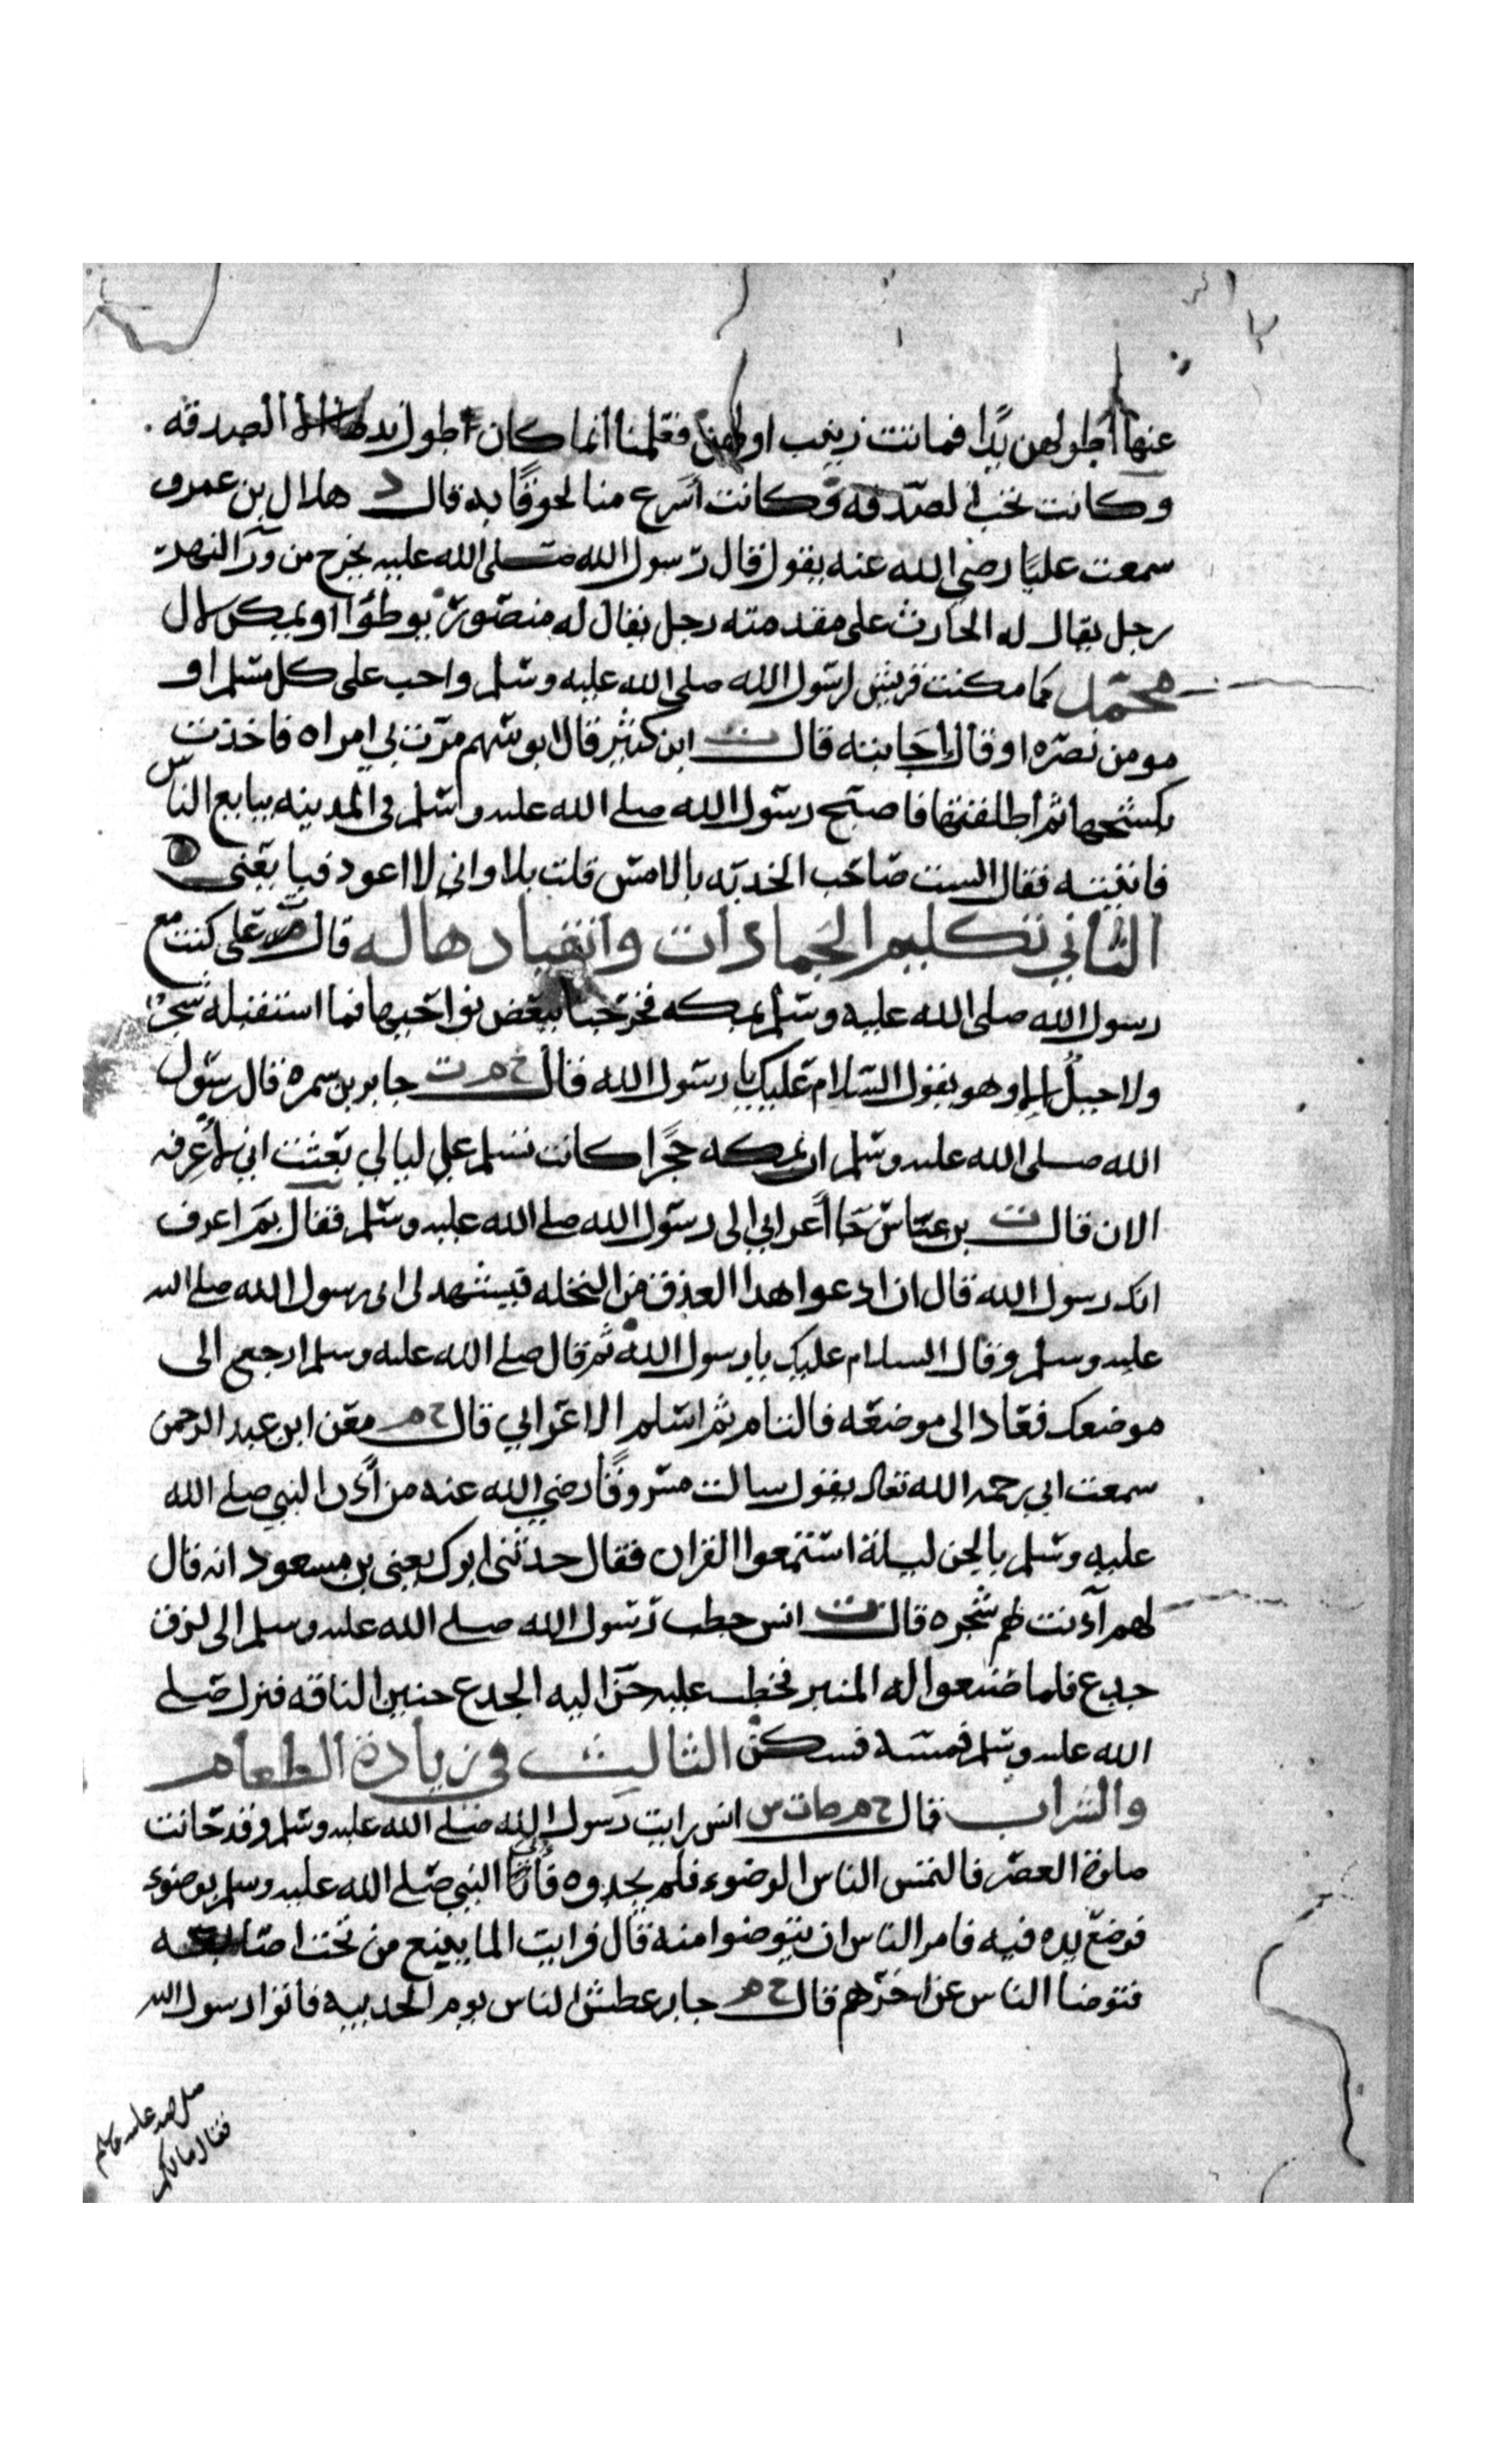 عنها اطولهن يدا فماتت زينب اولهن فعلمنا انما كان اطول يدها الصدقه
وكانت تحب الصدقه وكانت اسرع منا لحوقا به قال د هلال بن عمرو
سمعت عليا رضي الله عنه يقول قال رسول الله صلى الله عليه يخرج من ورآ النهر
رجل يقال له الحارث على مقدمته رجل يقال له منصور يوطوا او يمكن لال
محمد كما مكنت قريش لرسول الله صلى الله عليه وسلم واجب على كل مسلم او
مومن نصره او قال اجابته قال ابن كثير قال ابو سهم مرت بي امراه فاخذت
بكشحها ثم اطلقتها فاصبح رسول الله صلى الله عليه وسلم في المدينه يبايع الناس
فاتيته فقال الست صاحب بالامس قلت بلا واني لا اعود فبايعني
الثاني تكليم الجمادات وانقيادها له قال علي كنت مع
رسول الله صلى الله عليه وسلم بمكه فخرجنا ببعض نواحيها فما استقبله شجر
ولا جبل الا وهو يقول السلام عليك يا رسول الله قال خ م ت جابر بن سمره قال رسول
الله صلى الله عليه وسلم ان بمكه حجرا كانت تسلم علي ليالي بعثت اني لاعرفه
الان قال ت بن عباس جا اعرابي الى رسول الله صلى الله عليه وسلم فقال بم اعرف
انك رسول الله قال ان ادعوا هدا العذق من النخله فيشهد لي اني رسول الله صلى الله
عليه وسلم وقال السلام عليك يا رسول الله ثم قال صلى الله عليه وسلم ارجع الى
موضعك فعاد الى موضعه فالتام ثم اسلم الاعرابي قال خ م معن ابن عبد الرحمن
سمعت ابي رحمه الله تعالى يقول سالت مسروقا رضي الله عنه من آذن النبي صلى الله
عليه وسلم بالجن ليلة استمعوا القران فقال حدثني ابوك يعني بن مسعود انه قال
لهم آذنت بهم شجره قال ت انس خطب رسول الله صلى الله عليه وسلم الى لزق
جدع فلما صنعوا له المنبر فخطب عليه حن اليه الجدع حنين الناقه فنزل صلى
الله عليه وسلم فمسه فسكن الثالث في زيادة الطعام
والشراب قال خ م ط ت س انس رايت رسول الله صلى الله عليه وسلم وقد حانت
صلوة العصر فالتمس الناس الوضوء فلم يجدوه فأتي النبي صلى الله عليه وسلم بوضوء
فوضع يده فيه فامر الناس ان يتوضوا منه قال فرايت الما ينبع من تحت اصابعه
فتوضا الناس عن اخرهم قال خ م جابر عطش الناس يوم الحديبيه فاتوا رسول الله
صلى الله عليه وسلم
فقال مالكم